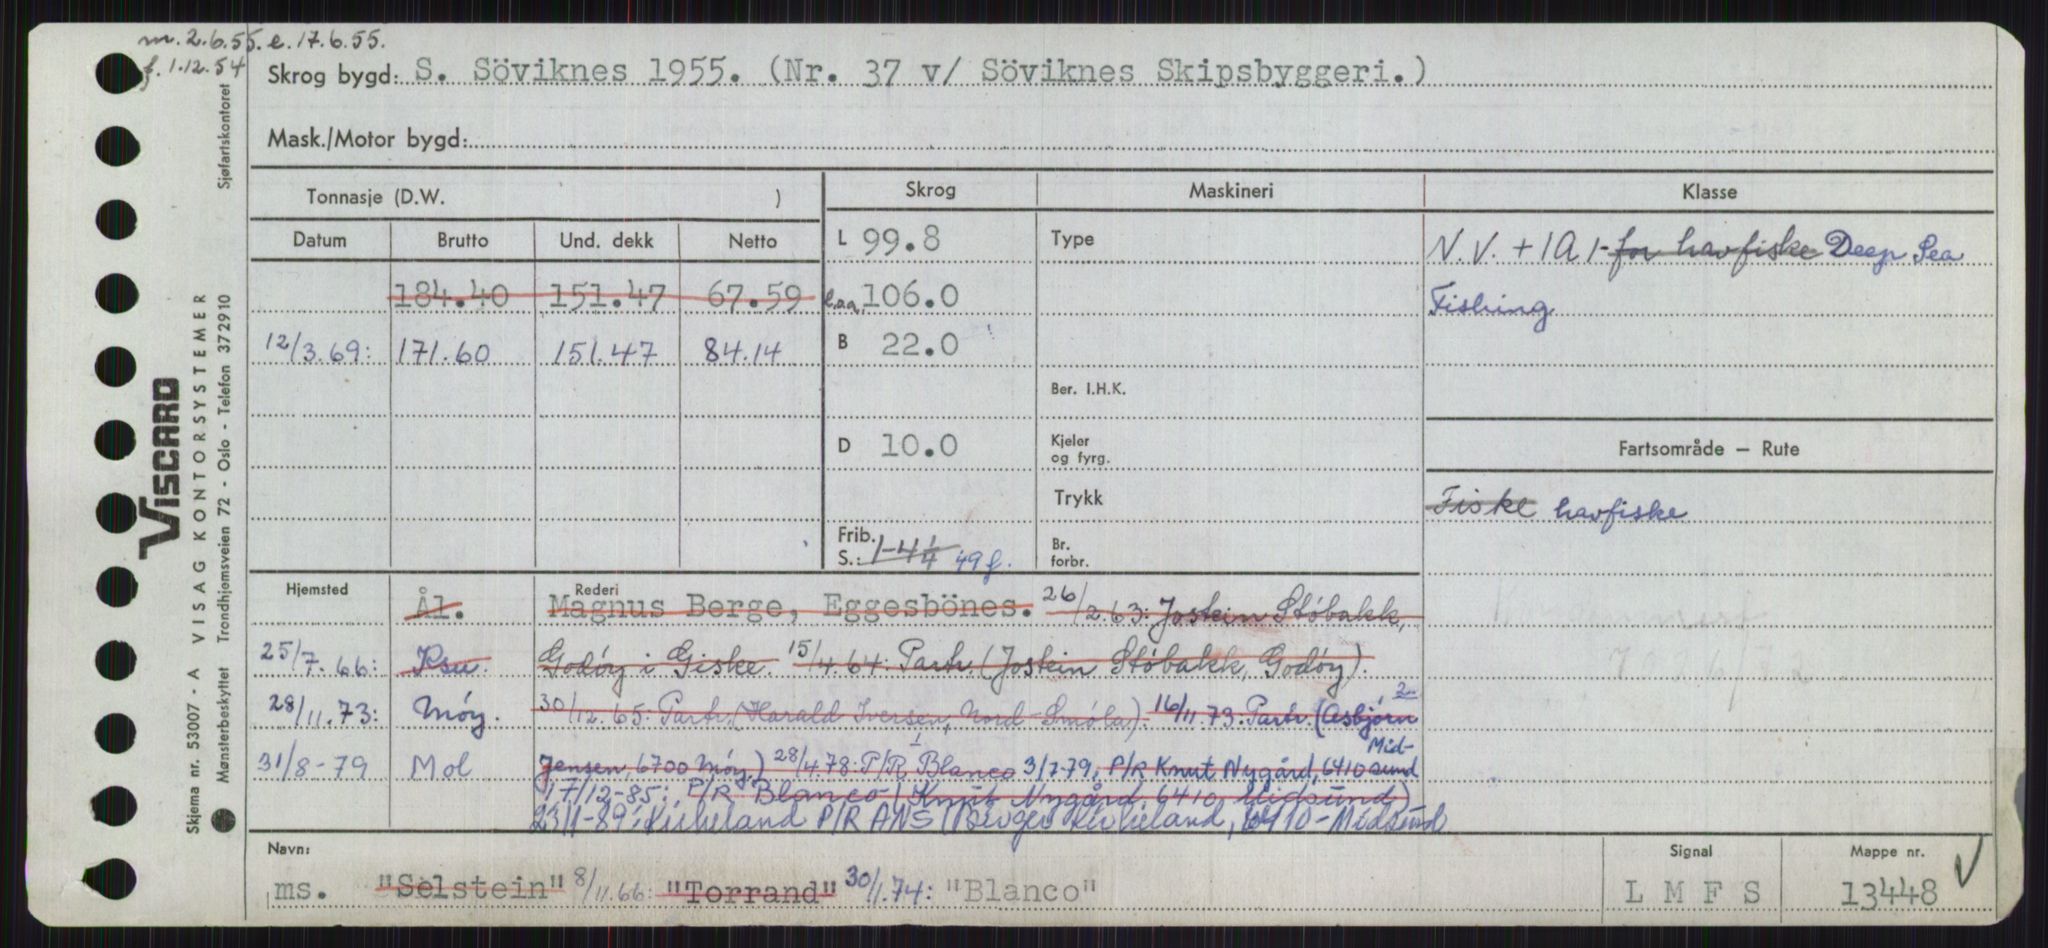 m. 2.6.55. e. 17.6.55.
f. 1.12.54
Skrog bygd: S. Söviknes 1955. (Nr. 37 v/ Söviknes Skipsbyggeri.)
Mask./Motor bygd:
Tonnasje (D.W. )
Skrog
Maskineri
Klasse
Datum Brutto Und. dekk Netto
L 99.8
Type
N.V. + 1A1 - for havfiske Deep Sea
184.40 151.47 67.59
l.aa. 106.0
Fishing
12/3.69: 171.60 151.47 84.14
B 22.0
Ber. I.H.K.
D 10.0
Kjeler
og fyrg.
Fartsområde — Rute
Trykk
Fiske havfiske
Frib.
S.: 1-4 1/4 49 f.
Br.
forbr.
Hjemsted
Rederi
Ål. Magnus Berge, Eggesbönes. 26/2.63: Jostein Støbakk,
25/7.66: Ksu. Godøy i Giske. 15/4.64: Partr. (Jostein Støbakk, Godøy).
28/11.73: Møy. 30/12.65: Partr. (Harald Iversen, Nord-Smøla). 16/11.73. Partr. (Asbjørn
31/8-79 Mol Jensen, 6700 Møy.) 28/4.78: P/R Blanco 3/7-79, P/R Knut Nygård, 6410 Mid-
sund
17/12-85: P/R Blanco (Knut Nygård, 6410 Midsund)
23/1-89: Kirkeland P/R ANS (Birger Kirkeland, 6410-Midsund
Navn:
ms. "Selstein" 8/11.66: "Torrand" 30/1.74: "Blanco"
Signal
L M F S
Mappe nr.
13448
VISCARD
Skjema nr. 53007 - A VISAG KONTORSYSTEMER
Mønsterbeskyttet Trondhjemsveien 72 - Oslo - Telefon 372910 Sjøfartskontoret